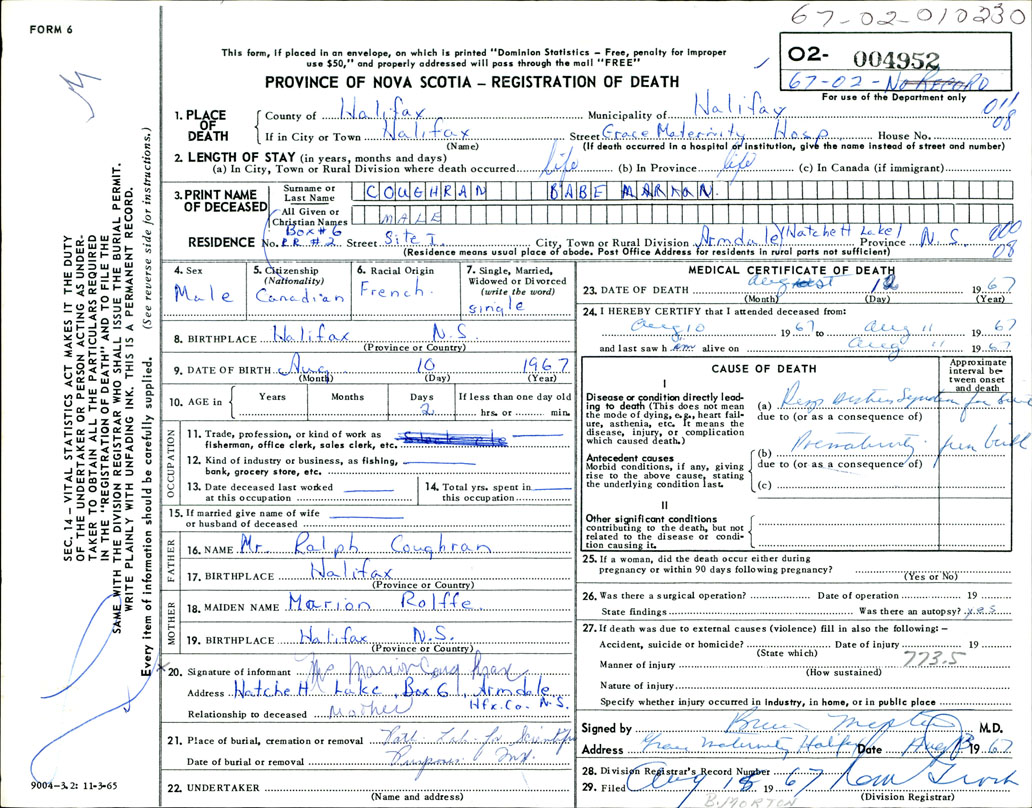 67-02-010230
FORM 6
This form, if placed in an envelope, on which is printed "Dominion Statistics – Free, penalty for improper
use $50," and properly addressed will pass through the mail "FREE"
PROVINCE OF NOVA SCOTIA – REGISTRATION OF DEATH
O2- 004952
67-02- No RECORD
For use of the Department only
011
08
1. PLACE OF DEATH
County of Halifax Municipality of Halifax
If in City or Town Halifax Street Grace Maternity Hosp House No.
(Name) (If death occurred in a hospital or institution, give the name instead of street and number)
2. LENGTH OF STAY (in years, months and days)
(a) In City, Town or Rural Division where death occurred life (b) In Province life (c) In Canada (if immigrant)
3. PRINT NAME OF DECEASED
Surname or Last Name COUGHRAN BABE MARION
All Given or Christian Names MALE
RESIDENCE No. Box #6 R.R. #2 Street Site I City, Town or Rural Division Armdale (Hatchett Lake) Province N.S. 000
08
(Residence means usual place of abode. Post Office Address for residents in rural parts not sufficient)
4. Sex
Male
5. Citizenship
(Nationality)
Canadian
6. Racial Origin
French.
7. Single, Married,
Widowed or Divorced
(write the word)
single
8. BIRTHPLACE Halifax N.S.
(Province or Country)
9. DATE OF BIRTH Aug 10 1967
(Month) (Day) (Year)
10. AGE in
Years Months Days If less than one day old
2 hrs. or min.
OCCUPATION
11. Trade, profession, or kind of work as
fisherman, office clerk, sales clerk, etc.
12. Kind of industry or business, as fishing,
bank, grocery store, etc.
13. Date deceased last worked
at this occupation
14. Total yrs. spent in
this occupation
15. If married give name of wife
or husband of deceased
FATHER
16. NAME Mr. Ralph Coughran
17. BIRTHPLACE Halifax
(Province or Country)
MOTHER
18. MAIDEN NAME Marion Rolffe.
19. BIRTHPLACE Halifax N.S.
(Province or Country)
20. Signature of informant Marion Coughran
Address Hatchett Lake, Box 6, Armdale
Hfx. Co. N.S.
Relationship to deceased Mother
21. Place of burial, cremation or removal Path Lab. for Scientific
Date of burial or removal Purposes
22. UNDERTAKER
(Name and address)
MEDICAL CERTIFICATE OF DEATH
23. DATE OF DEATH August 12 1967
(Month) (Day) (Year)
24. I HEREBY CERTIFY that I attended deceased from:
Aug 10 1967 to Aug 11 1967
and last saw h alive on Aug 11 1967
CAUSE OF DEATH
Approximate
interval be-
tween onset
and death
I
Disease or condition directly lead-
ing to death (This does not mean
the mode of dying, e.g., heart fail-
ure, asthenia, etc. It means the
disease, injury, or complication
which caused death.)
(a) Resp Distress Syndrome from birth
due to (or as a consequence of)
Antecedent causes
Morbid conditions, if any, giving
rise to the above cause, stating
the underlying condition last.
(b) Prematurity from birth
due to (or as a consequence of)
(c)
II
Other significant conditions
contributing to the death, but not
related to the disease or condi-
tion causing it.
25. If a woman, did the death occur either during
pregnancy or within 90 days following pregnancy?
(Yes or No)
26. Was there a surgical operation? Date of operation 19
State findings Was there an autopsy? yes
27. If death was due to external causes (violence) fill in also the following: –
Accident, suicide or homicide? Date of injury 19
(State which)
773.5
Manner of injury
(How sustained)
Nature of injury
Specify whether injury occurred in industry, in home, or in public place
Signed by M.D.
Address Grace Maternity Halifax Date Aug 13 1967
28. Division Registrar's Record Number
29. Filed Aug 15 1967
B. MORTON (Division Registrar)
SEC. 14 – VITAL STATISTICS ACT MAKES IT THE DUTY
OF THE UNDERTAKER OR PERSON ACTING AS UNDER-
TAKER TO OBTAIN ALL THE PARTICULARS REQUIRED
IN THE "REGISTRATION OF DEATH" AND TO FILE THE
SAME WITH THE DIVISION REGISTRAR WHO SHALL ISSUE THE BURIAL PERMIT.
WRITE PLAINLY WITH UNFADING INK. THIS IS A PERMANENT RECORD.
Every item of information should be carefully supplied. (See reverse side for instructions.)
9004–3.2: 11-3-65